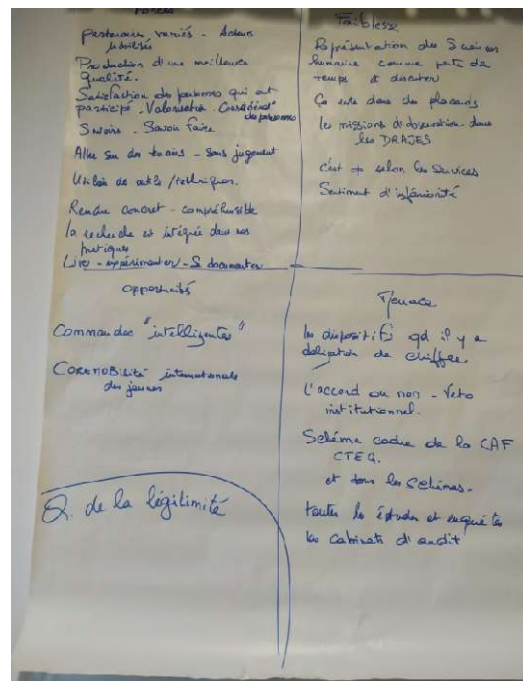 Forces
partenaires variés - Acteurs
mobilisés
Production d'une meilleure
qualité.
Satisfaction des personnes qui ont
participé - Valorisation - Considérat°
des personnes
Savoirs - Savoir faire
Aller sur des terrains - sans jugement
outils / techniques.
Rendre concret - compréhensible
la recherche est intégrée dans nos
pratiques
Lire - expérimenter - Se documenter
opportunités
Commandes "intelligentes"
internationale
des jeunes
Q. de la légitimité
Faiblesse
Représentation des Sciences
humaine comme perte de
temps à discuter
Ça reste dans des placards
les missions d'observation dans
les DRAJES
c'est + selon les Services
Sentiment d'infériorité
Menace
les dispositifs qd il y a
obligation de chiffres.
L'accord ou non - Veto
institutionnel.
Schéma cadre de la CAF
CTEG.
et tous les Schémas.
toutes les études et enquêtes
les Cabinets d'audit